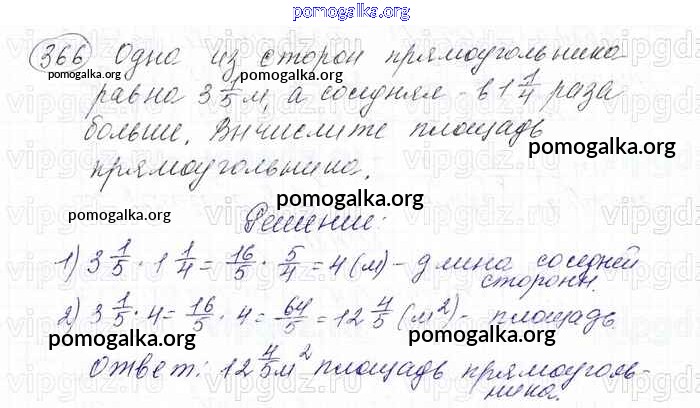 pomogalka.org
366 Одна из сторон прямоугольника
pomogalka.org pomogalka.org pomogalka.org
равна 3 1/5 м, а соседняя - в 1 1/4 раза
больше. Вычислите площадь
pomogalka.org
прямоугольника.
pomogalka.org
pomogalka.org
Решение:
1) 3 1/5 · 1 1/4 = 16/5 · 5/4 = 4 (м) - длина соседней
стороны.
2) 3 1/5 · 4 = 16/5 · 4 = 64/5 = 12 4/5 (м²) - площадь
pomogalka.org pomogalka.org pomogalka.org
Ответ: 12 4/5 м² площадь прямоуголь-
ника.
pomogalka.org